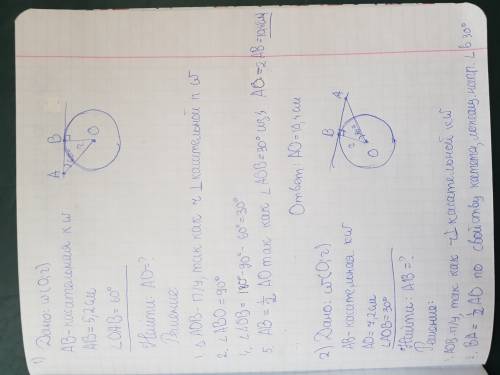 1) Дано: w(O; r)
AB-касательная к w
AB = 5,2 см
∠OAB = 60°
Найти: AO = ?
Решение:
1. △ AOB - п/у, так как r ⊥ касательной к w
2. ∠ABO = 90°
4. ∠AOB = 180° - 90° - 60° = 30°
5. AB = ½ AO так как ∠AOB = 30° из 4 AO = 2AB = 10,4 см
Ответ: AO = 10,4 см
A
B
O
r
60°
2) Дано: w(O; r)
AB касательная к w
AO = 7,2 см
∠AOB = 30°
Найти: AB = ?
Решение:
AOB - п/у, так как r ⊥ касательной к w
BA = ½ AO по свойству катета, лежащ. напр. ∠ в 30°
A
B
O
r
30°